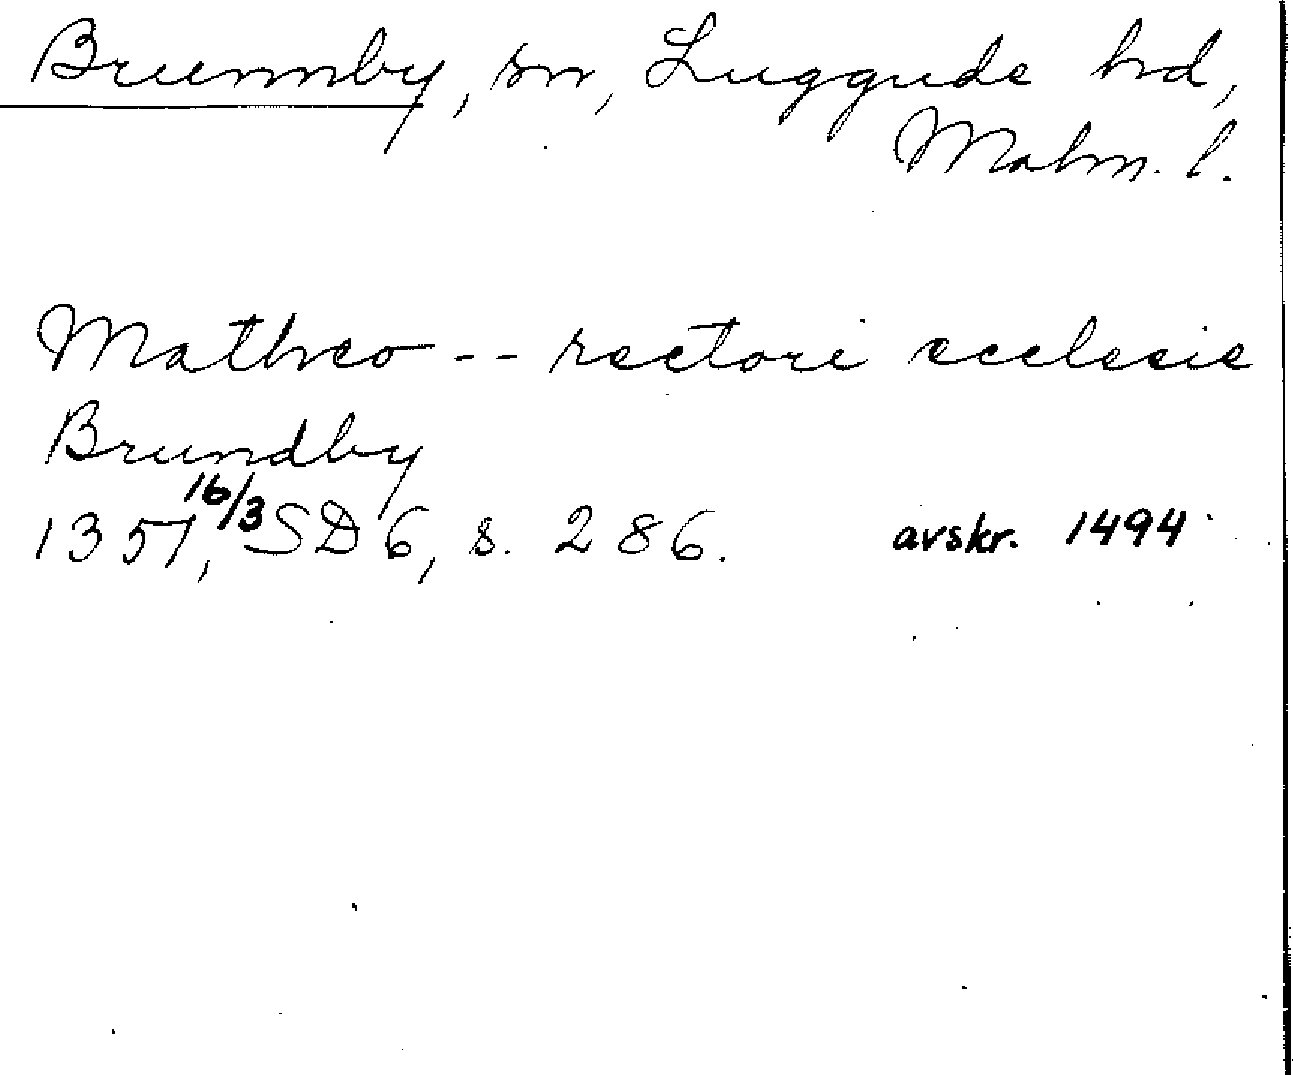 Brunnby, sn, Luggude hd,
Malm. l.
Matheo -- rectori ecclesie
Brundby
1351, 16/3 SD 6, s. 286. avskr. 1494